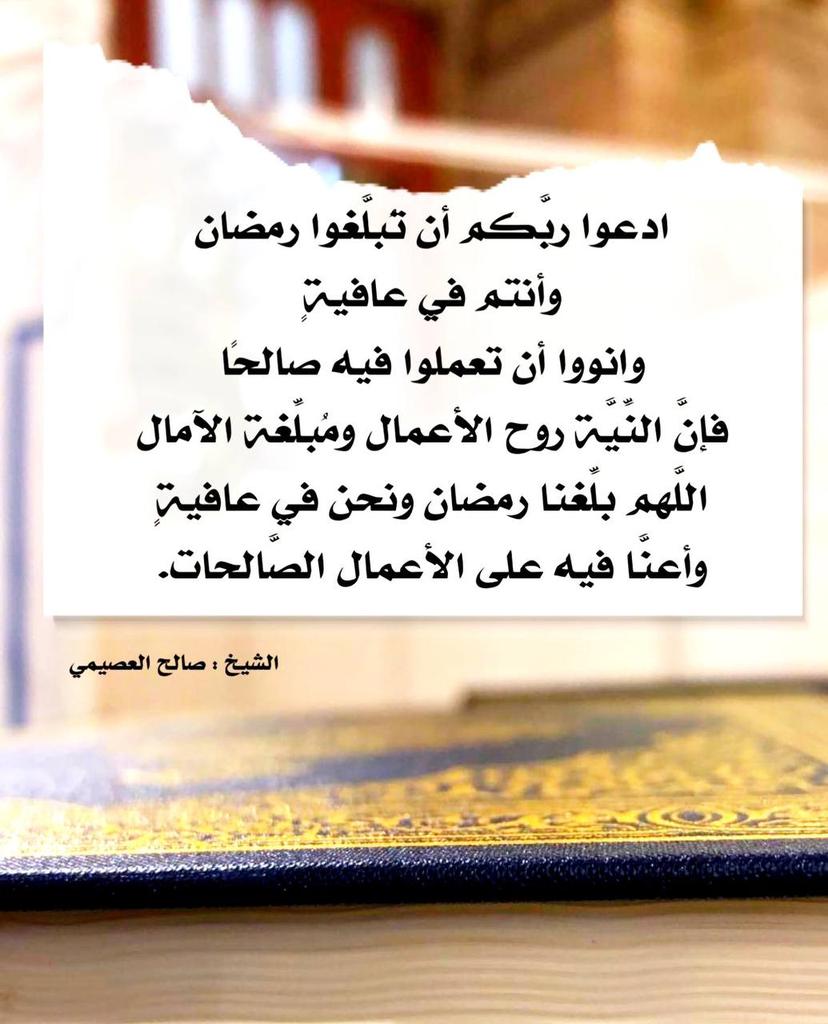 ادعوا ربَّكم أن تبلَّغوا رمضان
وأنتم في عافيةٍ
وانووا أن تعملوا فيه صالحًا
فإنَّ النِّيَّة روح الأعمال ومُبلِّغة الآمال
اللَّهم بلِّغنا رمضان ونحن في عافيةٍ
وأعنَّا فيه على الأعمال الصَّالحات.
الشيخ : صالح العصيمي